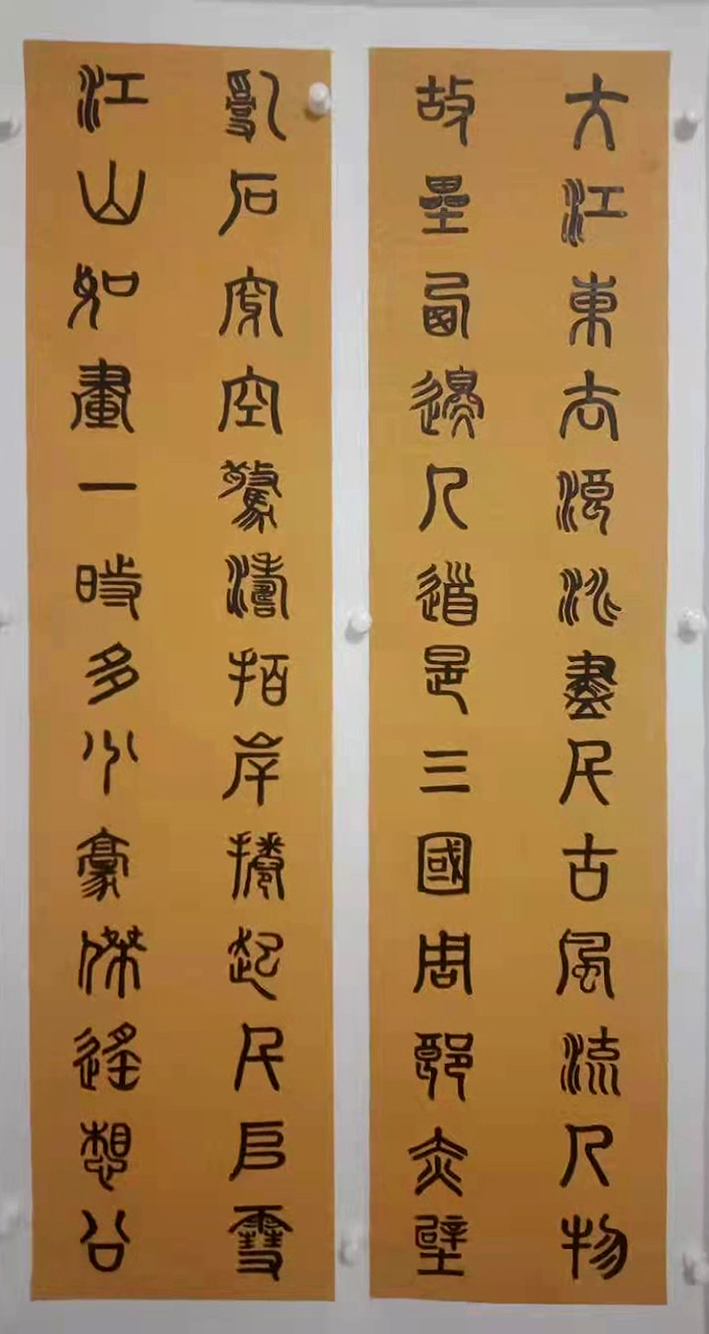 大江東去浪淘盡千古風流人物
故壘西邊人道是三國周郎赤壁
亂石穿空驚濤拍岸捲起千堆雪
江山如畫一時多少豪傑遙想公